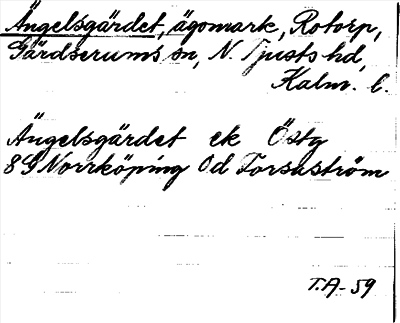 Ängelsgärdet, ägomark, Rotorp,
Gärdserums sn, N. Tjusts hd,
Kalm. l.
Ängelsgärdet ek Östg
8G Norrköping 0d Torsaström
T.A-59